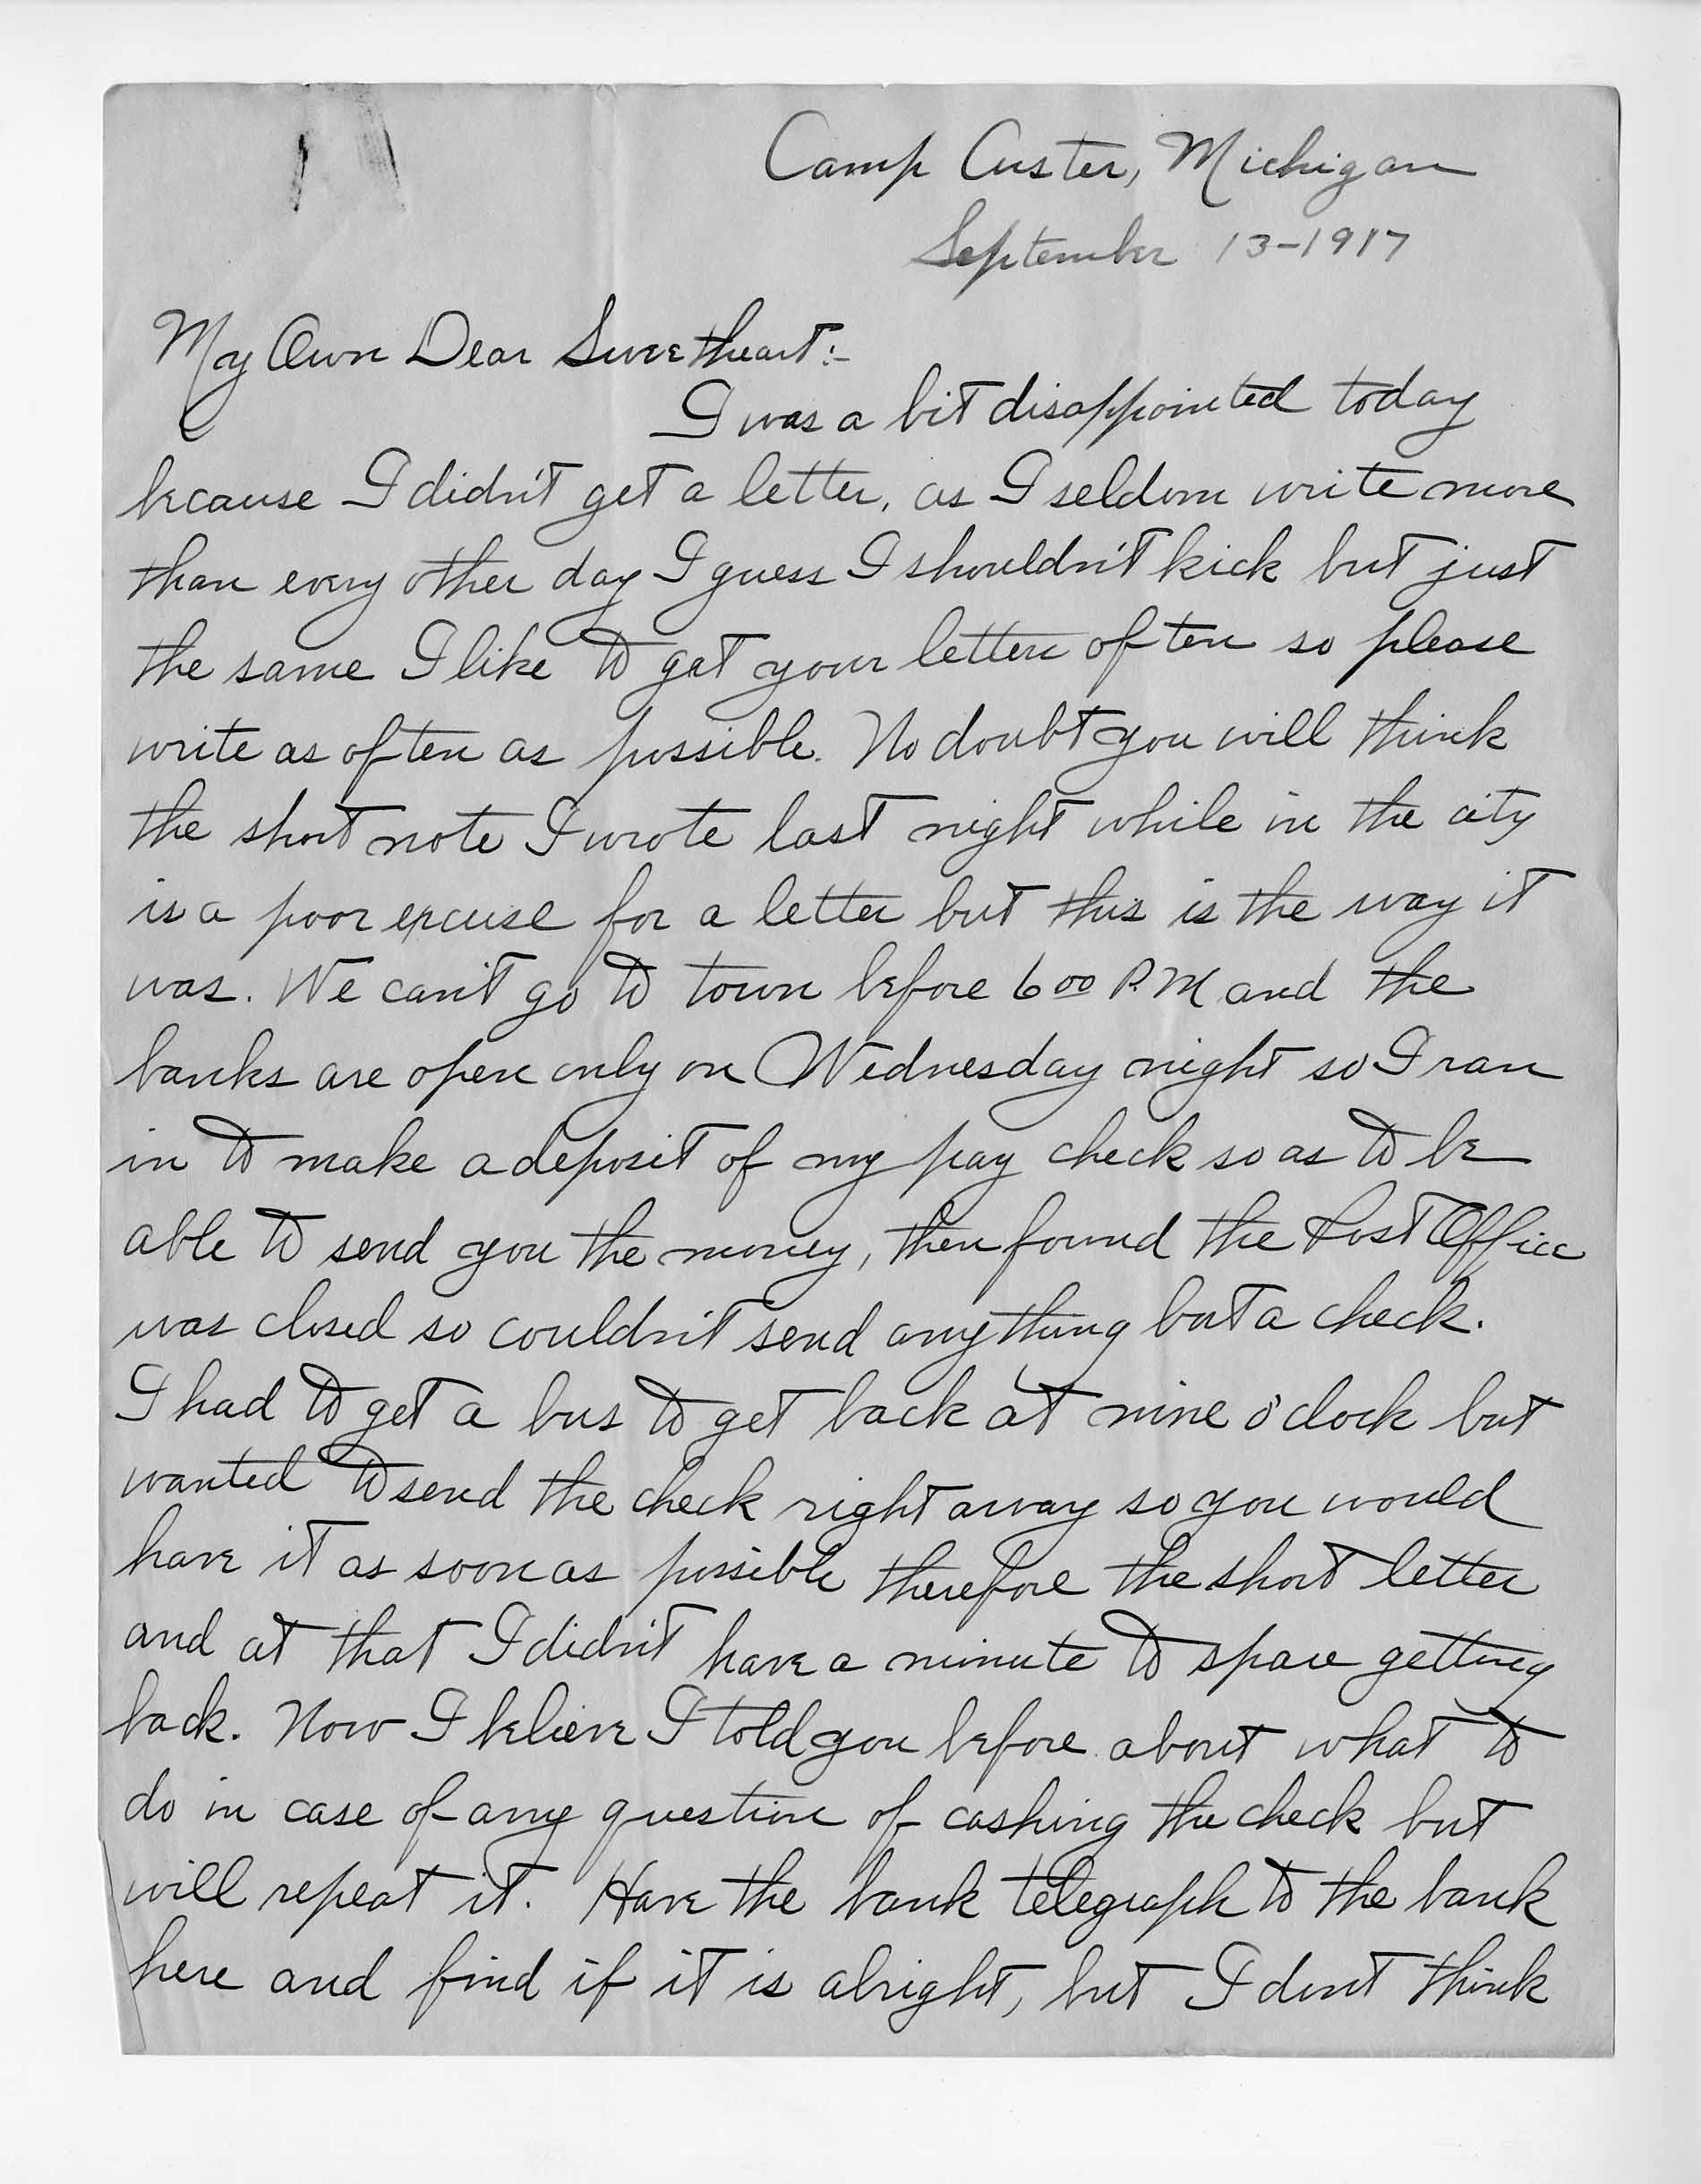 Camp Custer, Michigan
September 13-1917
My Own Dear Sweetheart:-
I was a bit disappointed today
because I didn't get a letter, as I seldom write more
than every other day I guess I shouldn't kick but just
the same I like to get your letters often so please
write as often as possible. No doubt you will think
the short note I wrote last night while in the city
is a poor excuse for a letter but this is the way it
was. We can't go to town before 6 00 P.M and the
banks are open only on Wednesday night so I ran
in to make a deposit of my pay check so as to be
able to send you the money, then found the Post Office
was closed so couldn't send anything but a check.
I had to get a bus to get back at nine o'clock but
wanted to send the check right away so you would
have it as soon as possible therefore the short letter
and at that I didn't have a minute to spare getting
back. Now I believe I told you before about what to
do in case of any question of cashing the check but
will repeat it. Have the bank telegraph to the bank
here and find if it is alright, but I dont think